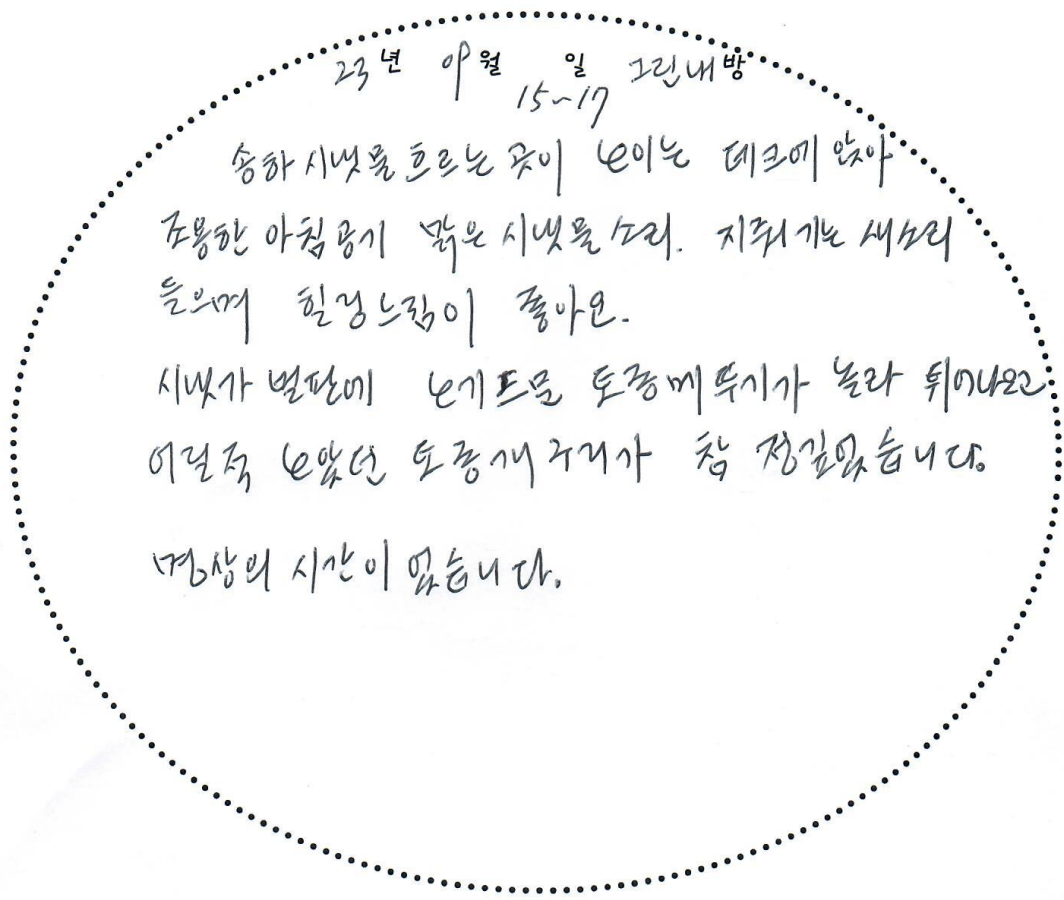 23년 09월 15~17일 그린내방
송하 시냇물 흐르는 곳이 보이는 데크에 앉아
조용한 아침공기 맑은 시냇물소리. 지줘기는 새소리
들으며 힐링느낌이 좋아요.
시냇가 벌판에 보기드문 토종메뚜기가 놀라 튀어나오고
어릴적 보았던 토종개구리가 참 정깊었습니다.
명상의 시간이 었습니다.